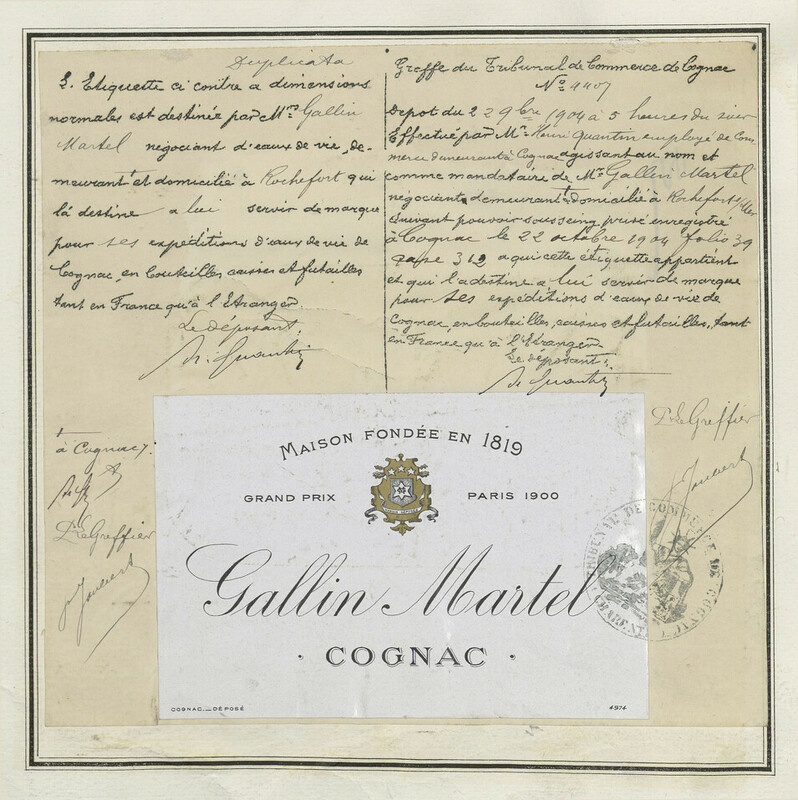 Duplicata
L'Etiquette ci contre a dimensions
normales est destinée par Mr. Gallin
Martel négociant d'eaux de vie, de-
meurant et domicilié à Rochefort qui
la destine a lui servir de marque
pour ses expéditions d'eaux de vie de
Cognac, en bouteilles caisses et futailles
tant en France qu'à l'Etranger.
Le déposant.
H. Quantin
à Cognac
Le Greffier
Greffe du Tribunal de Commerce de Cognac
No 4407
Depot du 2 9bre 1904 à 5 heures du soir
Effectué par Mr. Henri Quantin employé de Com-
merce demeurant à Cognac agissant au nom et
comme mandataire de Mr. Gallin Martel
négociant demeurant et domicilié à Rochefort s/Mer
suivant pouvoir sous seing privé enregistré
à Cognac le 22 octobre 1904 folio 39
case 312 a qui cette étiquette appartient
et qui l'a destine a lui servir de marque
pour ses expéditions d'eaux de vie de
Cognac, en bouteilles, caisses et futailles, tant
en France qu'à l'Etranger
Le déposant.
H. Quantin
Le Greffier
MAISON FONDÉE EN 1819
GRAND PRIX PARIS 1900
Gallin Martel
· COGNAC ·
COGNAC.__DÉPOSÉ 4974
TRIBUNAL DE COMMERCE DE COGNAC